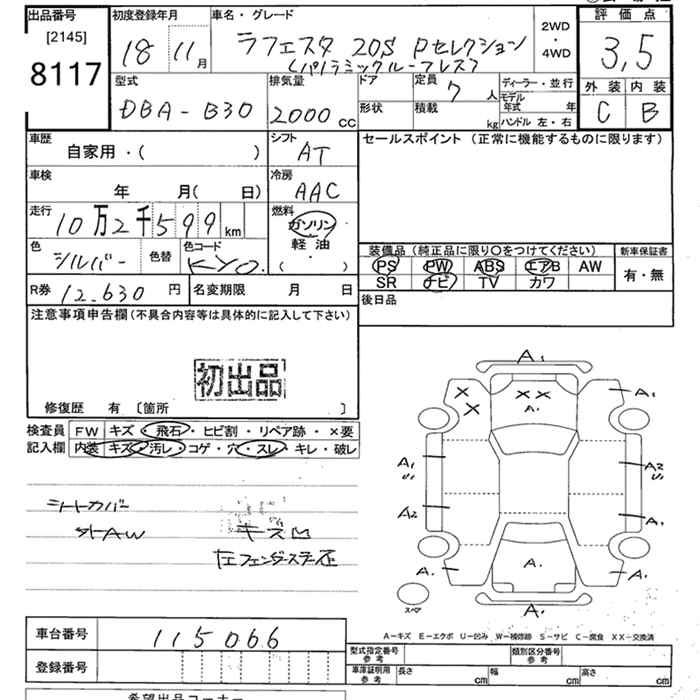 出品番号
[2145]
8117
初度登録年月
18 11月
車名・グレード
ラフェスタ 20S Pセレクション
(パノラミックルーフレス)
2WD
・
4WD
評価点
3,5
外装 内装
C B
型式
DBA-B30
排気量
2000cc
ドア
形状
定員 7人
積載 kg
ディーラー・並行
モデル年式 年
ハンドル 左・右
車歴
自家用・( )
シフト
AT
セールスポイント(正常に機能するものに限ります)
車検
年 月( 日)
冷房
AAC
走行
10万2千599km
燃料
ガソリン
軽油
( ・ )
色
シルバー
色替
色コード
KYO.
R券 12.630円
名変期限 月 日
装備品(純正品に限り○をつけてください)
新車保証書
PS PW ABS エアB AW
SR ナビ TV カワ
有・無
後日品
注意事項申告欄(不具合内容等は具体的に記入して下さい)
初出品
修復歴 有 〔箇所 〕
検査員記入欄
FW キズ・飛石・ヒビ割・リペア跡・×要
内装 キズ・汚レ・コゲ・穴・スレ・キレ・破レ
シートカバー
外AW
キズ凹
左フェンダーステー歪
A1
X X
X X
A.
A1
A1
U1
A2
U1
A2
A1
A.
A.
A1
スペア
A1
A-キズ E-エクボ U-凹み W-補修跡 S-サビ C-腐食 XX-交換済
車台番号
115066
登録番号
型式指定番号
参考
類別区分番号
参考
車庫証明用
参考
長さ cm
幅 cm
高さ cm
希望出品コーナー